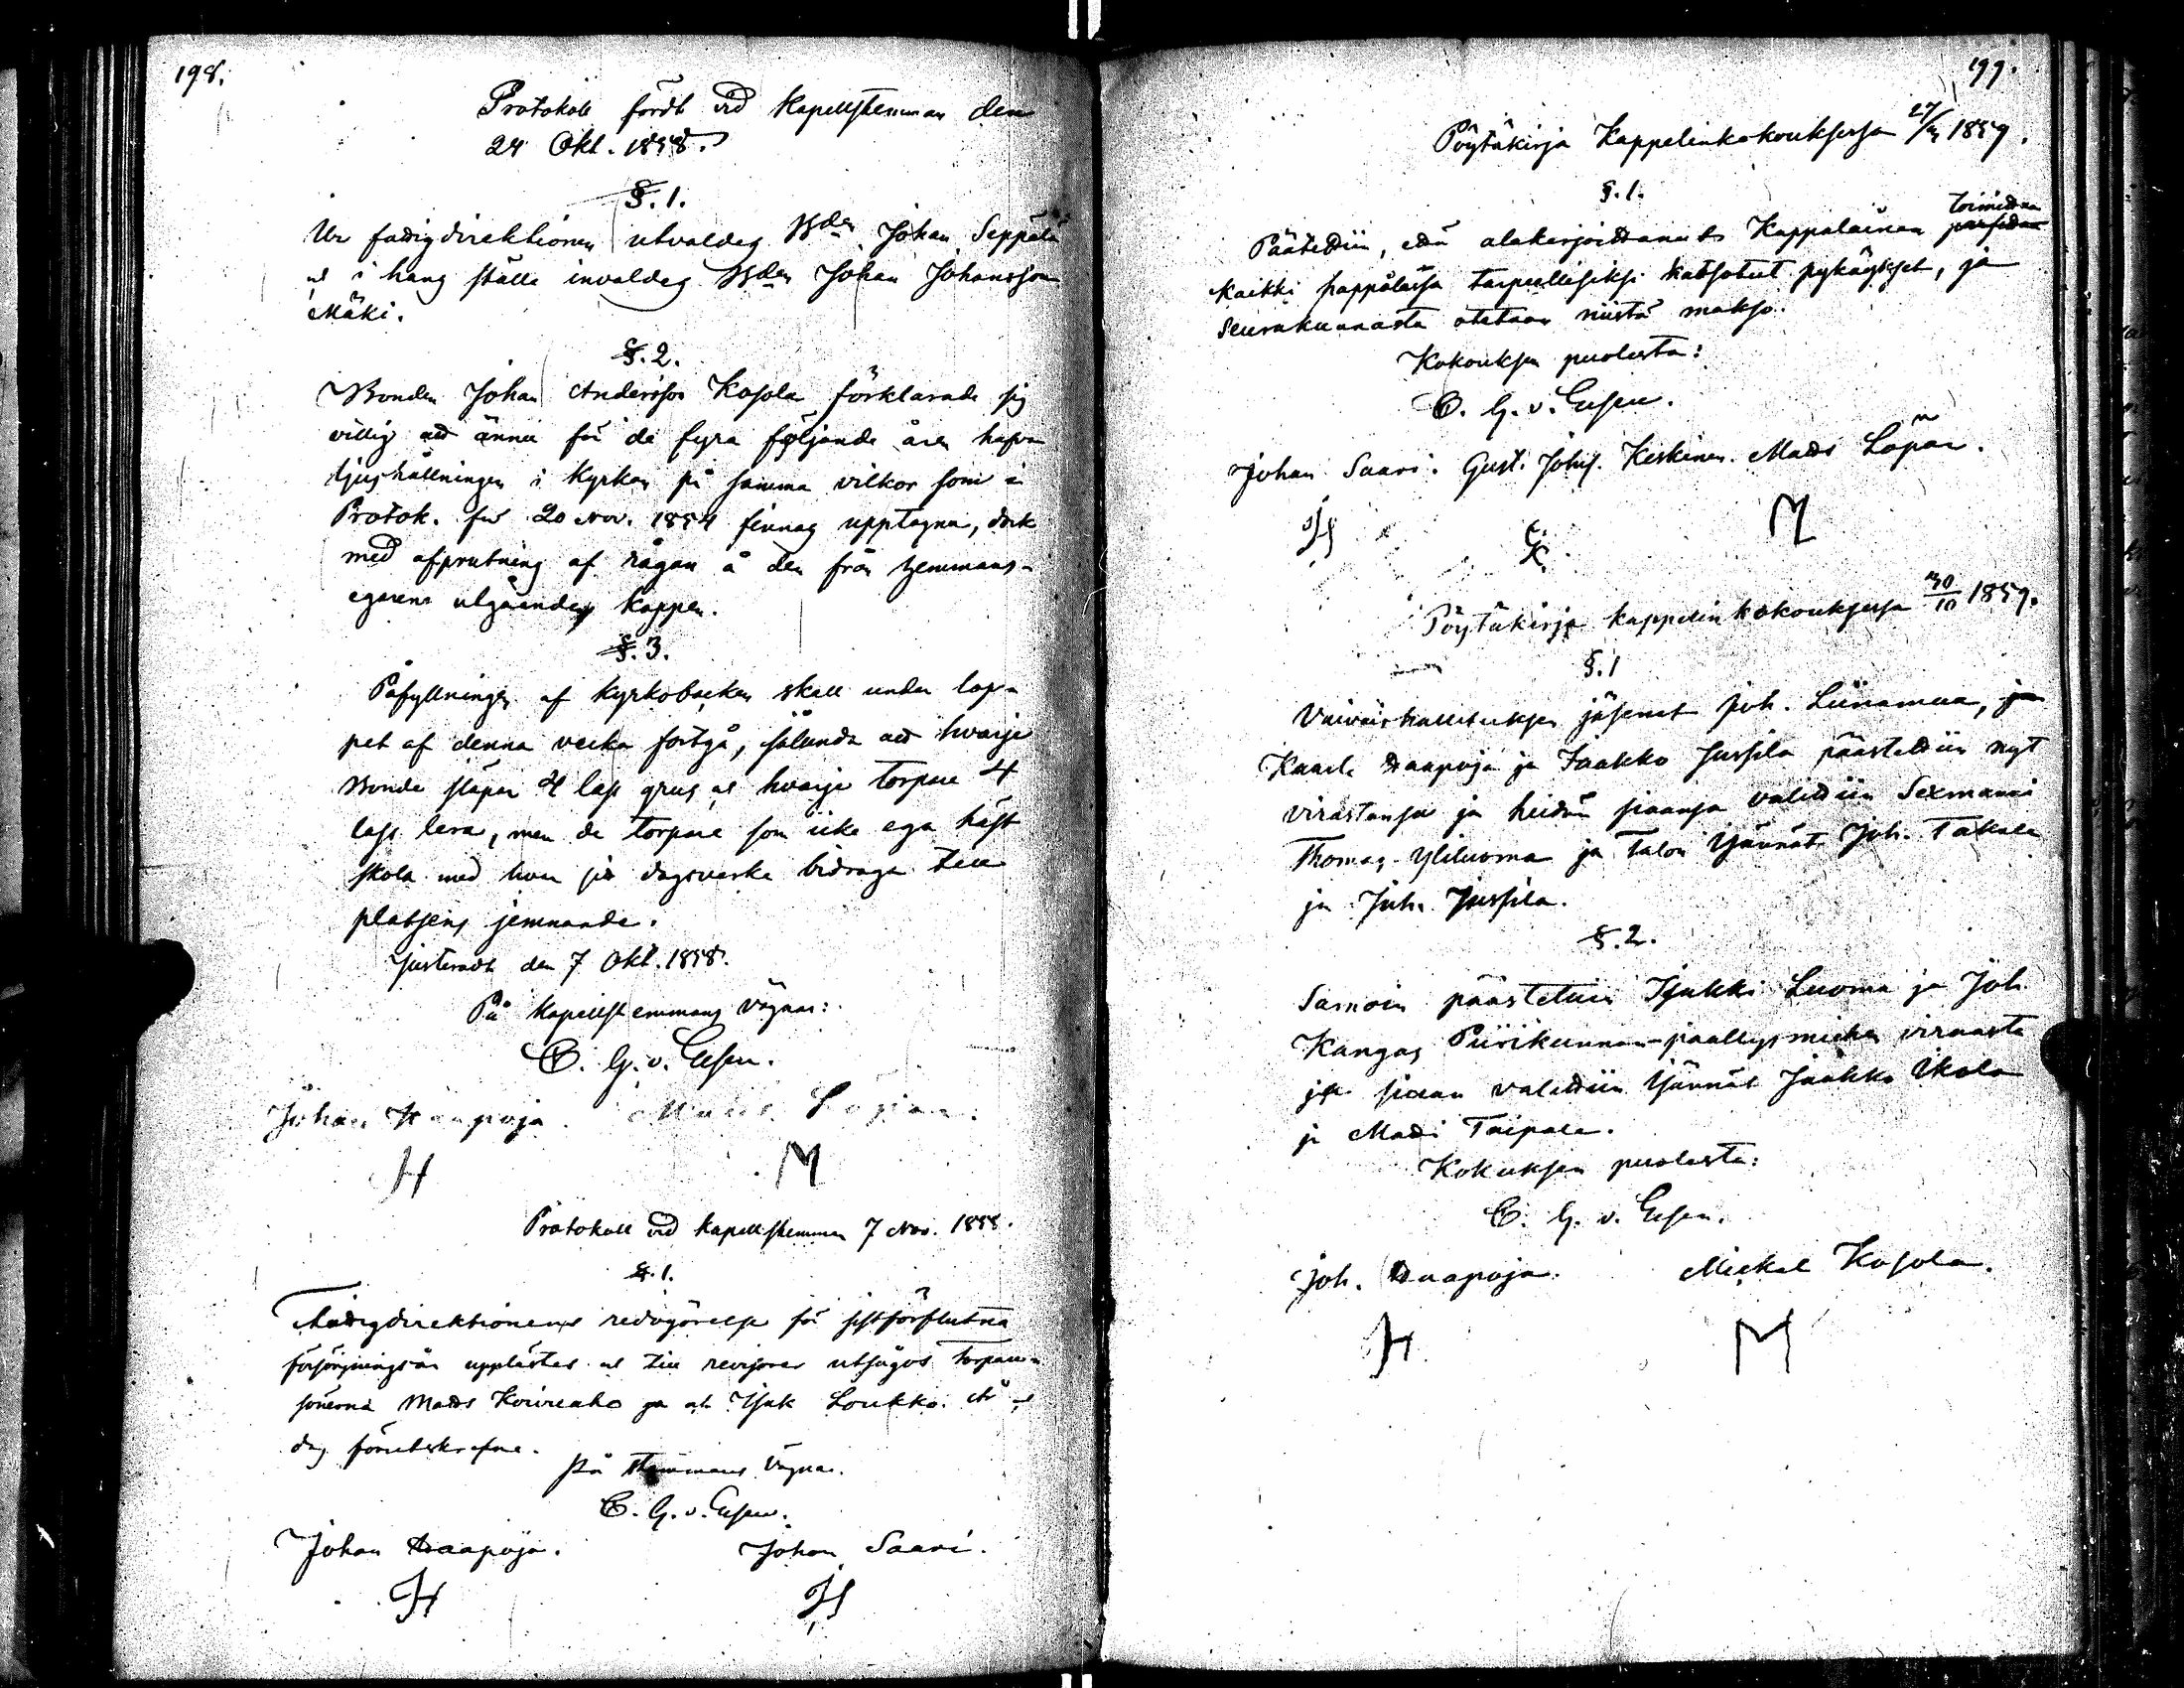 198.
Protokoll fördt vid Kapellstemman den
24 Okt. 1858.
§. 1.
Ur fattigdirektionen utvaldes Bden Johan Seppälä
et i hans ställe invaldes Bden Johan Johansson
Mäki.
§. 2.
Bonden Johan Andersson Kosola förklarade sig
villig att ännu för de fyra följande åren hafva
ljushållningen i Kyrkan på samma vilkor som i
Protok. för 20 Nov. 1854 finnas upptagna, dock
med afprutning af rågan å den från hemmans-
egarena utgående kappen.
§. 3.
Påfyllningen af Kyrkobacken skall under lop-
pet af denna vecka fortgå, sålunda att hvarje
Bonde släpar 4 lass grus et hvarje torpare 4
lass lera, men de torpare som icke ega häst
skola med hvar sit dagsverke bidraga till
platsens jemnande.
Justeradt den 7 Okt. 1858.
På Kapellstemmans vägnar:
C. G. v. Essen.
Johan Haapoja. Matts Löpar.
H M
Protokoll vid kapellstemman 7 Nov. 1858.
§. 1.
Fattigdirektionens redogörelse för sistförflutna
försörjningsår upplästes et till revisorer utsågos torpare-
sönerna Matts Koivuaho et Isak Loukko. År et
dag förutskrefne.
På stämmans vägnar.
C. G. v. Essen.
Johan Haapoja. Johan Saari.
H JS
199.
Pöytäkirja Kappelinkokouksessa 27/3 1859.
§. 1.
Päätettiin, että alakirjoittaneet Kappalainen toimittaa
kaikki pappilassa tarpeellisiksi katsotut pykäykset, ja
seurakunnasta otetaan niistä makso.
Kokouksen puolesta:
C. G. v. Essen.
Johan Saari. Gust. Johss. Keskinen. Matts Löpar.
JS G. K. M
Pöytäkirja kappelin kokouksessa 30/10 1859.
§. 1
Vaivaishallituksen jäsenet Joh. Liinamaa,
Kaarle Haapoja ja Jaakko Jussila päästettiin nyt
virastansa ja heidän siaansa valittiin Sexmanni
Thomas Yliluoma ja Talon Isännät Joh. Takala
ja Joh. Jussila.
§. 2.
Samoin päästettiin Isakki Luoma ja Joh.
Kangas Piirikunnan-päällysmiehen virasta
ja siaan valittiin Isännät Jaakko Ikola
ja Matti Taipale.
Kokuksen puolesta:
C. G. v. Essen.
Joh. Haapoja. Mickel Kosola.
H M